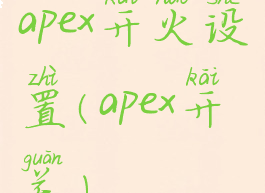 apex开火设
置(apex开
关)